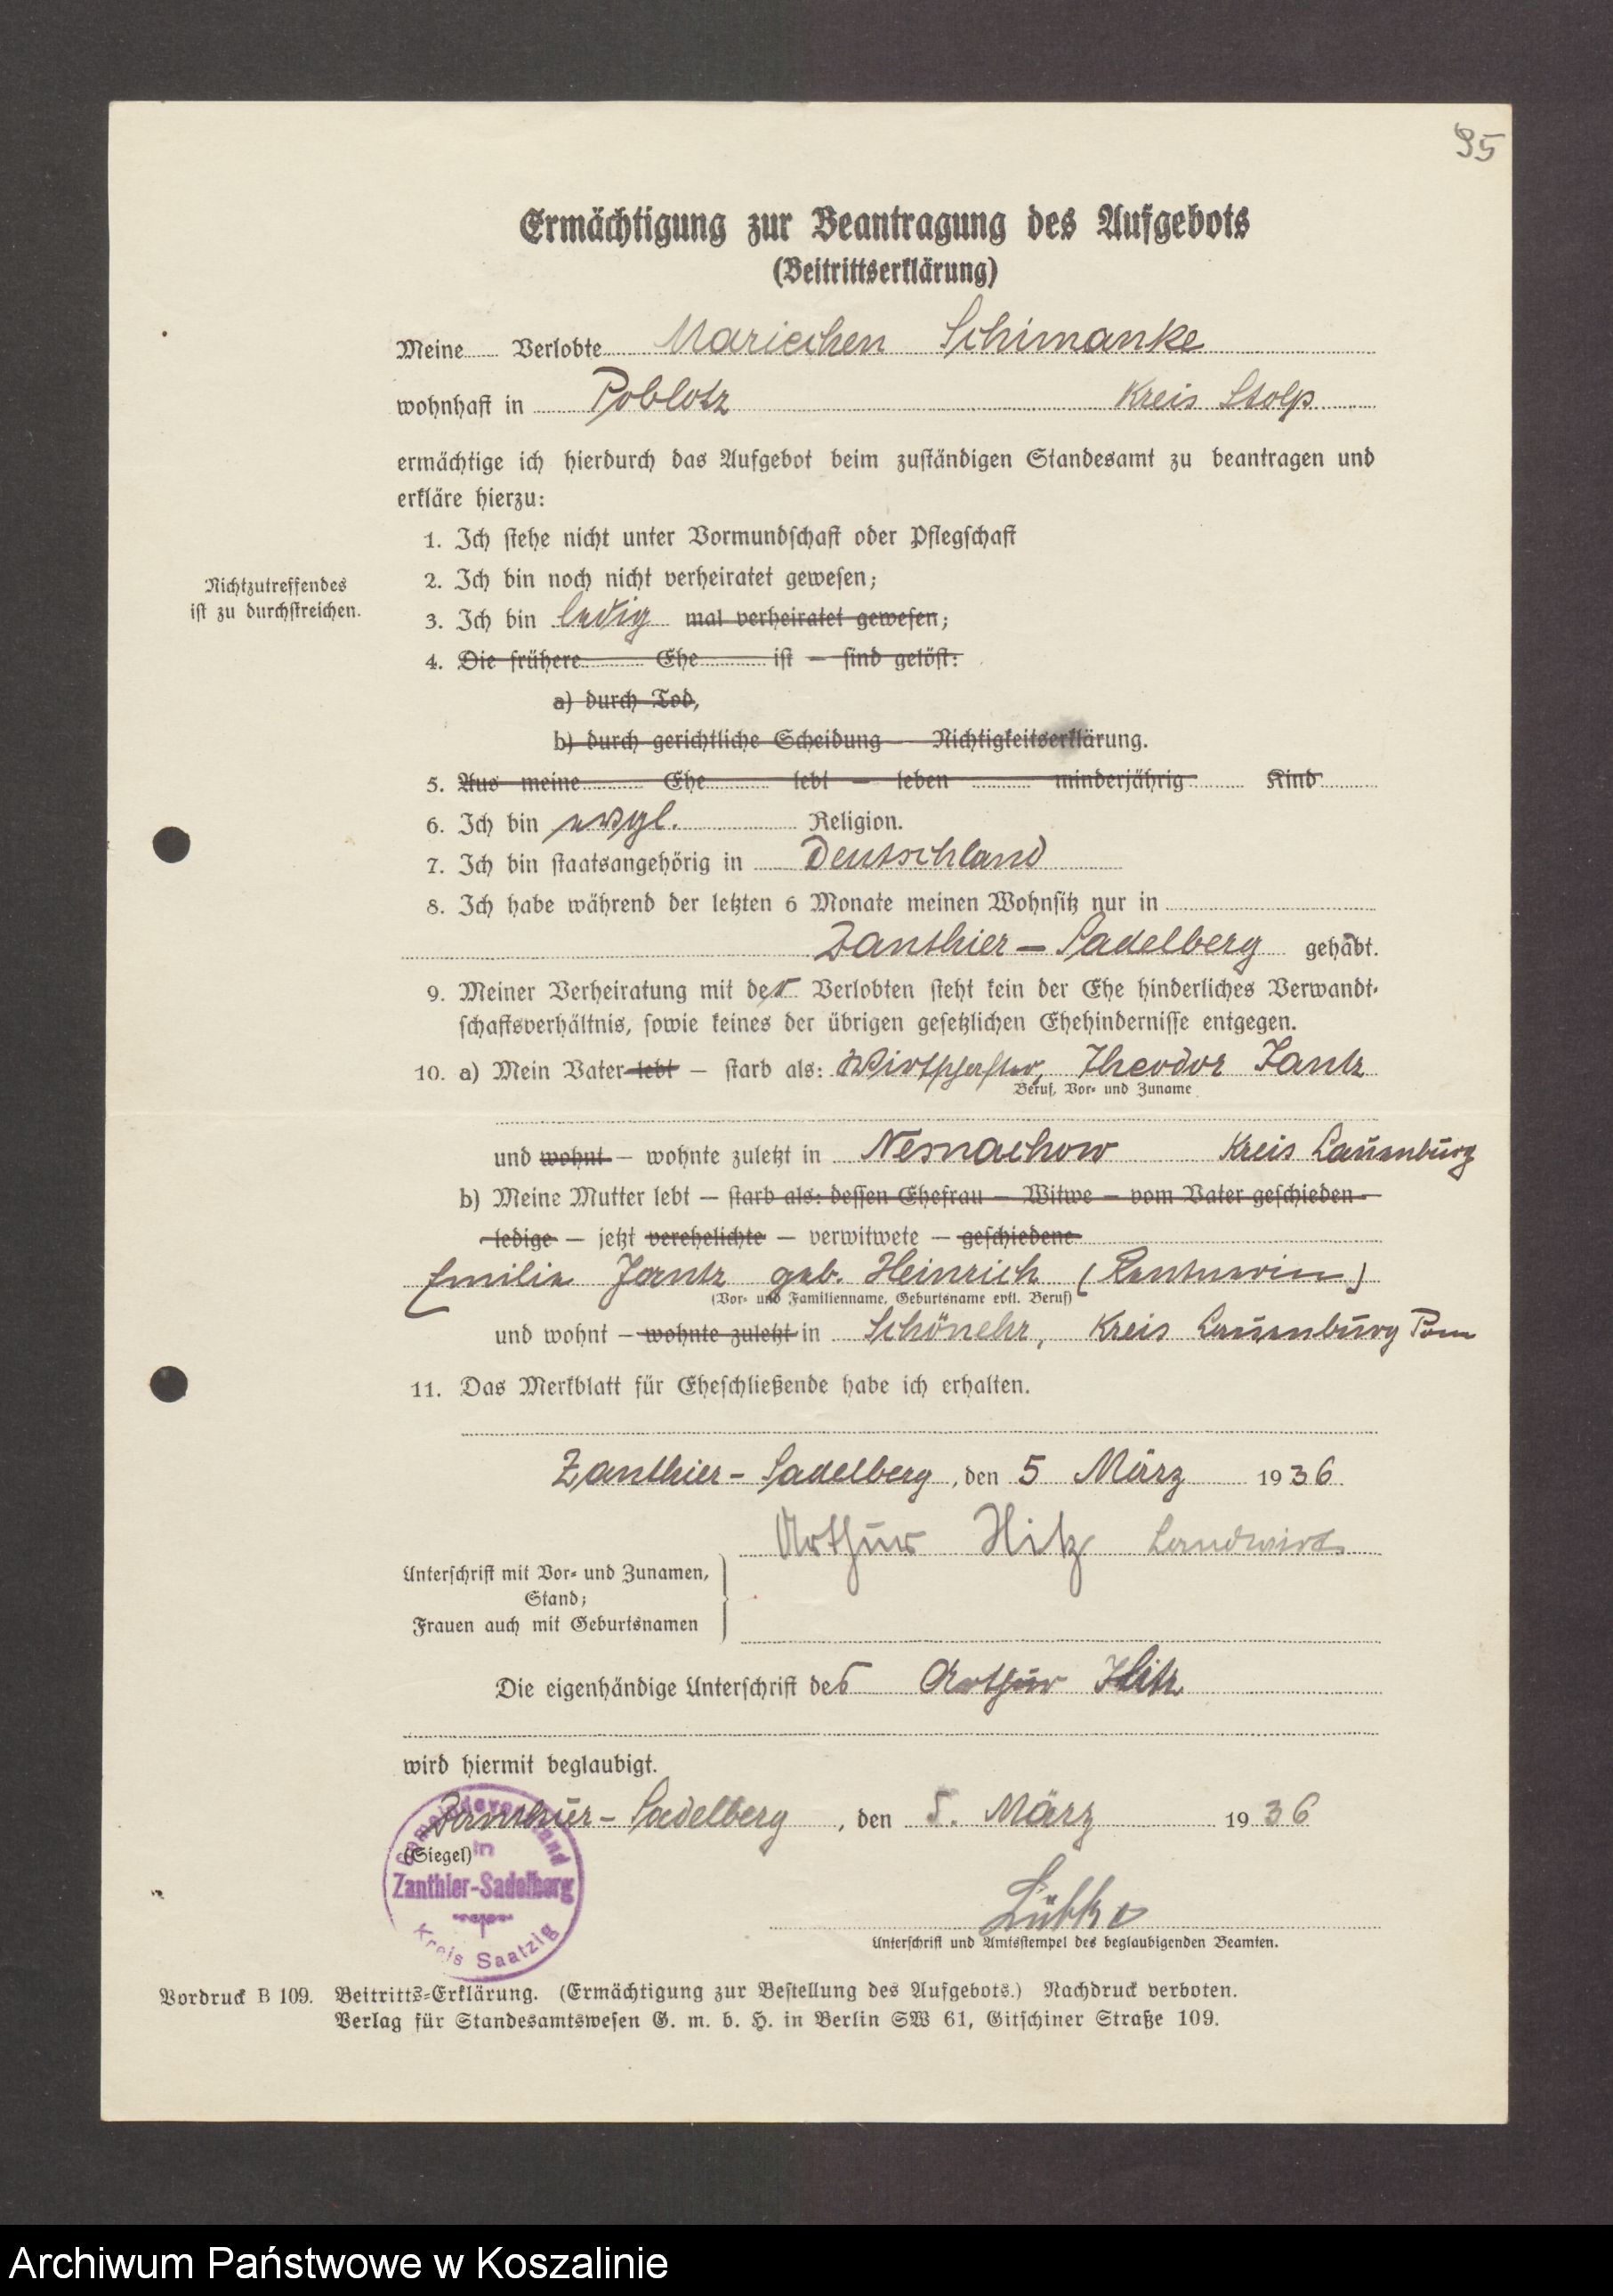 95
Ermächtigung zur Beantragung des Aufgebots
(Beitrittserklärung)
Meine Verlobte Mariechen Schimanke
wohnhaft in Poblotz Kreis Stolp
ermächtige ich hierdurch das Aufgebot beim zuständigen Standesamt zu beantragen und
erkläre hierzu:
1. Ich stehe nicht unter Vormundschaft oder Pflegschaft
Nichtzutreffendes
ist zu durchstreichen.
2. Ich bin noch nicht verheiratet gewesen;
3. Ich bin ledig mal verheiratet gewesen;
4. Die frühere Ehe ist — sind gelöst:
a) durch Tod,
b) durch gerichtliche Scheidung — Nichtigkeitserklärung.
5. Aus meine Ehe lebt — leben minderjährig Kind
6. Ich bin evgl. Religion.
7. Ich bin staatsangehörig in Deutschland
8. Ich habe während der letzten 6 Monate meinen Wohnsitz nur in
Zanthier-Sadelberg gehabt.
9. Meiner Verheiratung mit der Verlobten steht kein der Ehe hinderliches Verwandt-
schaftsverhältnis, sowie keines der übrigen gesetzlichen Ehehindernisse entgegen.
10. a) Mein Vater lebt — starb als: Theodor Jantz
Beruf, Vor- und Zuname
und wohnt — wohnte zuletzt in Nesnachow Kreis Lauenburg
b) Meine Mutter lebt — starb als: dessen Ehefrau — Witwe — vom Vater geschieden —
ledige — jetzt verehelichte — verwitwete — geschiedene
Emilie Jantz geb. Heinrich (Rentnerin)
(Vor- und Familienname, Geburtsname evtl. Beruf)
und wohnt — wohnte zuletzt in Schönehr, Kreis Lauenburg Pom
11. Das Merkblatt für Eheschließende habe ich erhalten.
Zanthier-Sadelberg, den 5 März 1936
Arthur Hitz Landwirt
Unterschrift mit Vor- und Zunamen,
Stand;
Frauen auch mit Geburtsnamen
Die eigenhändige Unterschrift des Arthur Hitz
wird hiermit beglaubigt.
Zanthier-Sadelberg, den 5. März 1936
(Siegel)
in
Zanthier-Sadelberg
Kreis Saatzig
Lübke
Unterschrift und Amtsstempel des beglaubigenden Beamten.
Vordruck B 109. Beitritts-Erklärung. (Ermächtigung zur Bestellung des Aufgebots.) Nachdruck verboten.
Verlag für Standesamtswesen G. m. b. H. in Berlin SW 61, Gitschiner Straße 109.
Archiwum Państwowe w Koszalinie